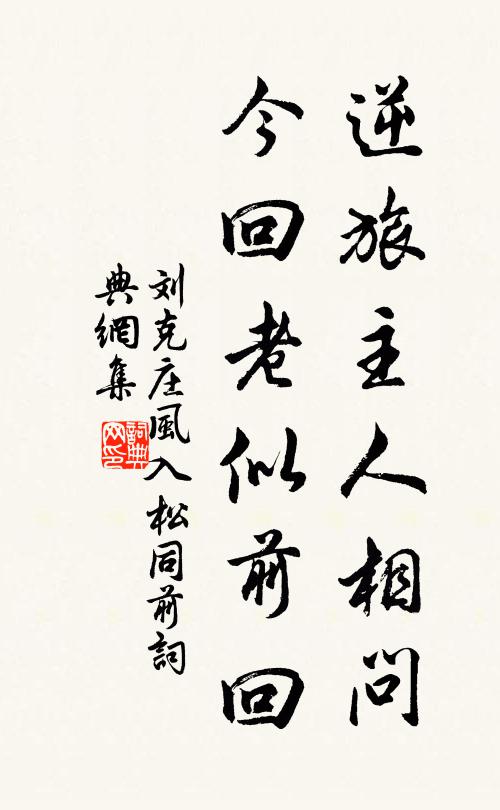 逆旅主人相問
今回老似前回
刘克庄風入松同前詞
典網集
詞典
网印